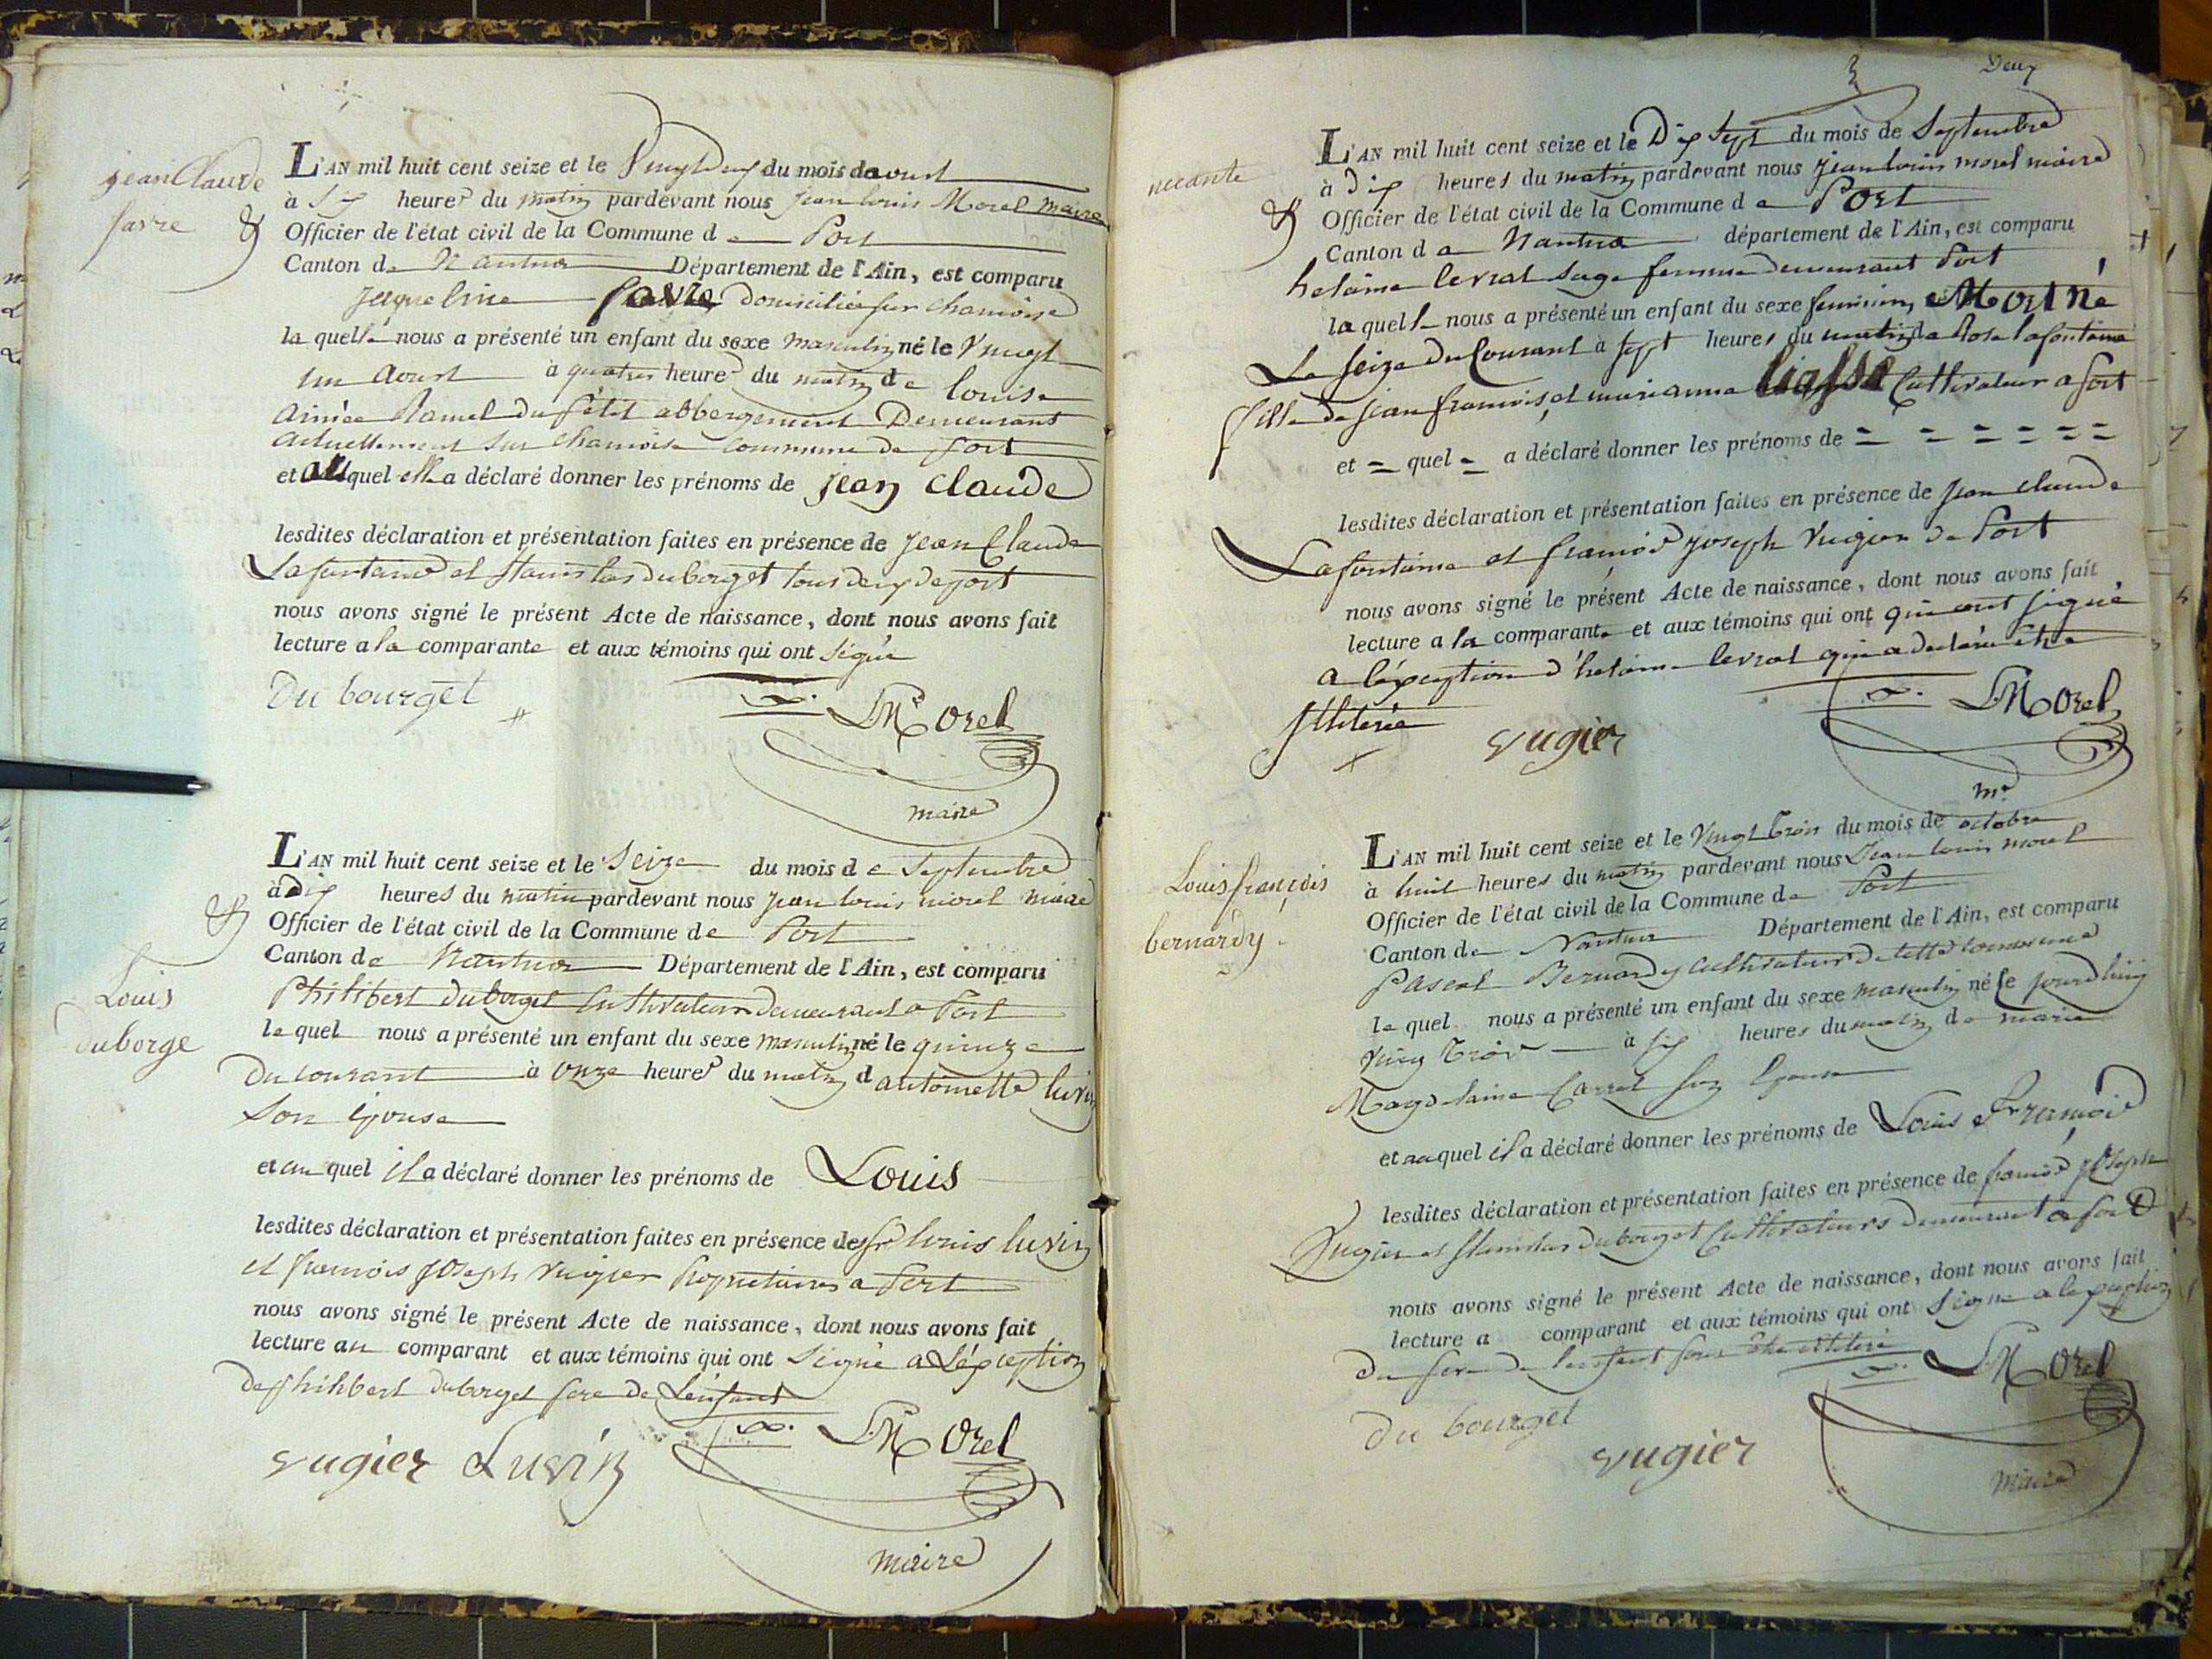 jean Claude
favre
L'AN mil huit cent seize et le Vingt deux du mois de aoust
à six heures du matin pardevant nous jean louis Morel maire
Officier de l'état civil de la Commune de Port
Canton de Nantua Département de l'Ain, est comparu
jaqueline favre domiciliée sur chamoise
la quelle nous a présenté un enfant du sexe masculin né le Vingt
un aoust à quatre heures du matin de louise
aimée Ramel du petit abbergement Demeurant
actuellement sur chamoise commune de port
et auquel elle a déclaré donner les prénoms de jean claude
lesdites déclaration et présentation faites en présence de jean Claude
Lafontaine et stanislas duborget tous deux de port
nous avons signé le présent Acte de naissance, dont nous avons fait
lecture a la comparante et aux témoins qui ont signé
Du bourget
Morel
maire
Louis
duborge
L'AN mil huit cent seize et le Seize du mois de Septembre
à dix heures du matin pardevant nous jean louis morel maire
Officier de l'état civil de la Commune de Port
Canton de Nantua Département de l'Ain, est comparu
Philibert duborget Cultivateur demeurant a Port
le quel nous a présenté un enfant du sexe masculin né le quinze
du courant à onze heures du matin d antoinette luvin
Son épouse
et au quel il a déclaré donner les prénoms de Louis
lesdites déclaration et présentation faites en présence de louis luvin
et francois joseph vugier Propriétaires a Port
nous avons signé le présent Acte de naissance, dont nous avons fait
lecture au comparant et aux témoins qui ont signé a l'éxception
de philibert duborget pere de l'enfant
vugier Luvin Morel
maire
Deux
L'AN mil huit cent seize et le Dix Sept du mois de Septembre
à dix heures du matin pardevant nous jean louis morel maire
Officier de l'état civil de la Commune de Port
Canton de Nantua département de l'Ain, est comparu
helaine levrat sage femme demeurant Port
la quelle nous a présenté un enfant du sexe feminin, Mort né
Le seize du Courant à sept heures du matin de Rose lafontaine
fille de jean francois, et marianne liasse Cultivateur a Port
et = quel = a déclaré donner les prénoms de = = = = = =
lesdites déclaration et présentation faites en présence de jean claude
Lafontaine et francois joseph Vugier de Port
nous avons signé le présent Acte de naissance, dont nous avons fait
lecture a la comparante et aux témoins qui ont qui ont signé
a l'éxception d'helaine levrat qui a déclaré être
illiterée
vugier Morel
mre
Louis françois
bernardy
L'AN mil huit cent seize et le Vingt trois du mois de octobre
à huit heures du matin pardevant nous Jean louis morel
Officier de l'état civil de la Commune de Port
Canton de Nantua Département de l'Ain, est comparu
Pascal Bernardy cultivateur de cette commune
le quel nous a présenté un enfant du sexe masculin né le jourdhuy
vingt trois à six heures du matin de marie
Magdelaine Carrel son épouse
et auquel il a déclaré donner les prénoms de Louis François
lesdites déclaration et présentation faites en présence de francois joseph
Vugier et stanislas duborget Cultivateurs demeurant a port
nous avons signé le présent Acte de naissance, dont nous avons fait
lecture a comparant et aux témoins qui ont signé a l'exception
du pere de l'enfant pour être illiteré
Morel
Du bourget
vugier
maire